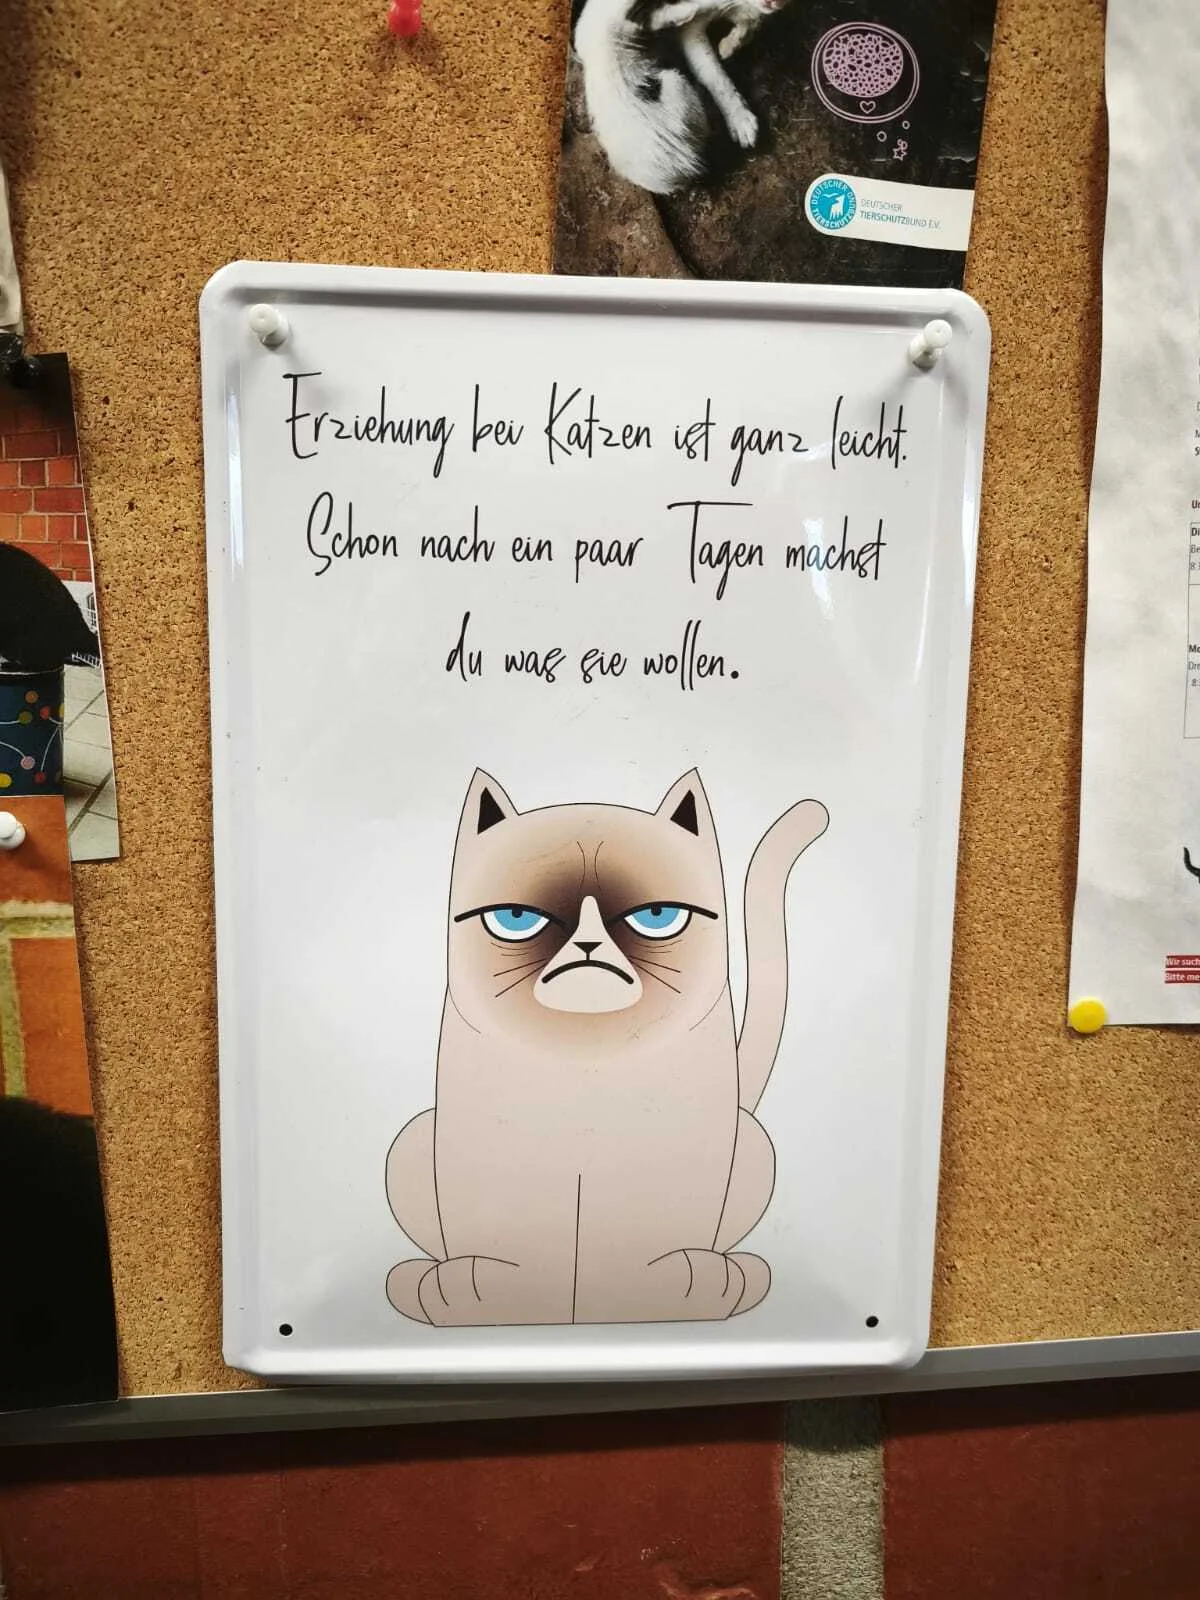 DEUTSCHER
TIERSCHUTZBUND E.V.
Erziehung bei Katzen ist ganz leicht.
Schon nach ein paar Tagen machst
du was sie wollen.
Wir such
Bitte me